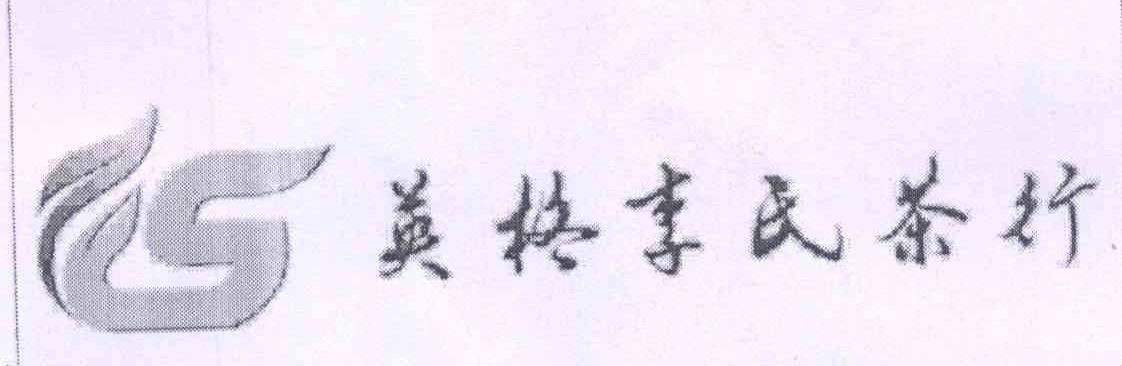 英格李氏茶行